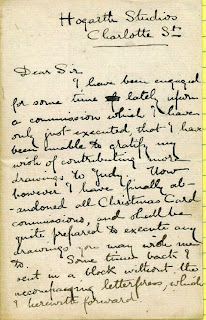 Hogarth Studios
Charlotte St.
Dear Sir,
I have been engaged
for some time lately upon
a commission which I have
only just executed that I have
been unable to gratify my
wish of contributing more
drawings to "Judy". Now
however I have finally ab-
-andoned all Christmas Card
commissions, and shall be
quite prepared to execute any
drawings you may wish me
to. Some time back I
sent in a block without the
accompanying letterpress, which
I herewith forward